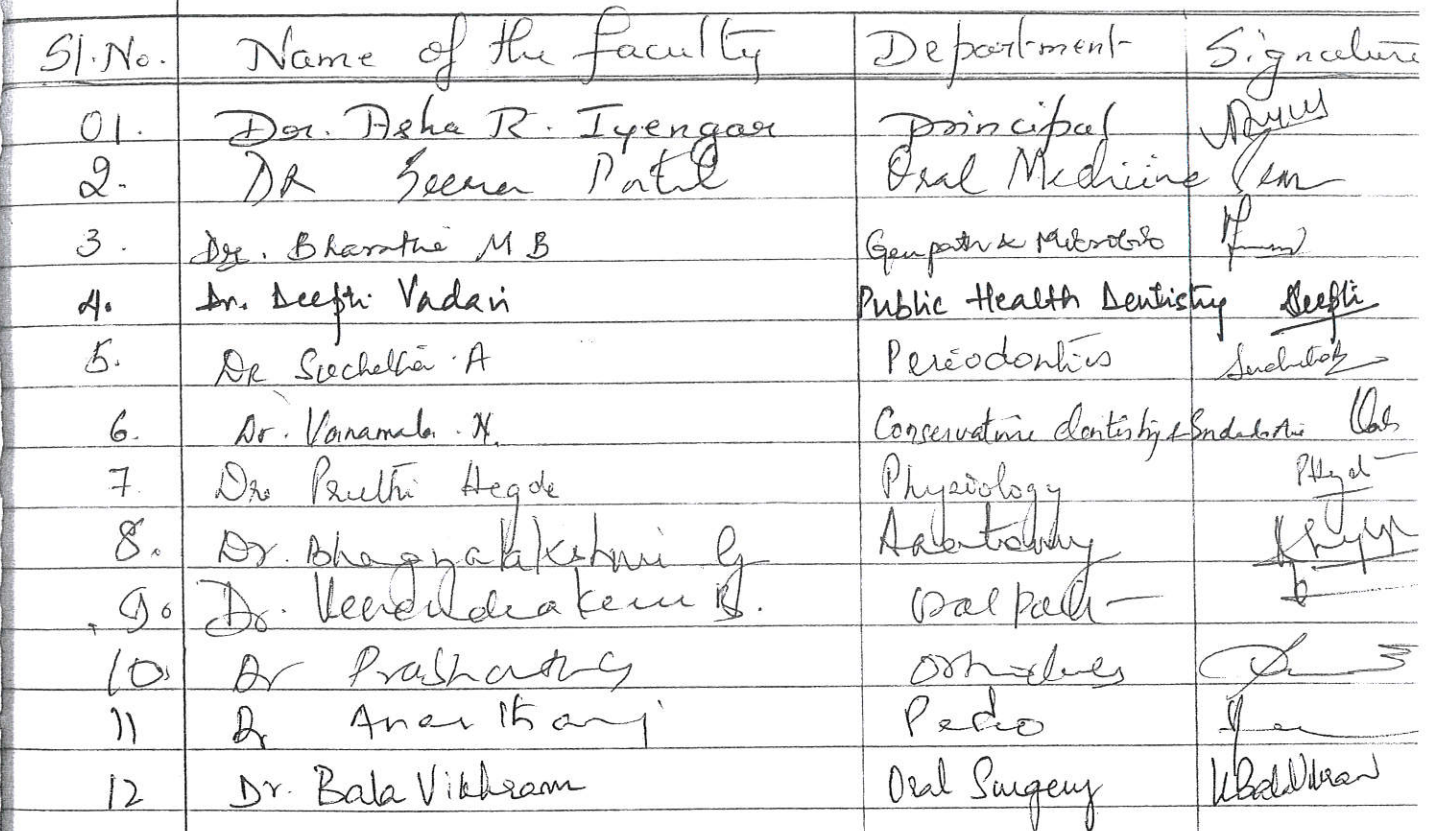 Sl.No. Name of the faculty Department Signature
01. Dr. Asha R. Iyengar Principal
2. DR Seema Patil Oral Medicine
3. Dr. Bharathi M B Genpath & Microbio
4. Dr. Deepti Vadavi Public Health Dentistry Deepti
5. Dr Suchetha A Periodontics Suchetha
6. Dr. Vanamala N. Conservative dentistry & Endodontics
7. Dr. Pruthi Hegde Physiology PHegd
8. Dr. Bhagyalakshmi G Anatomy
9. Dr. B. Oral path
10. Dr Prashanth
11 Dr Pedo
12 Dr. Bala Vikhram Oral Surgery